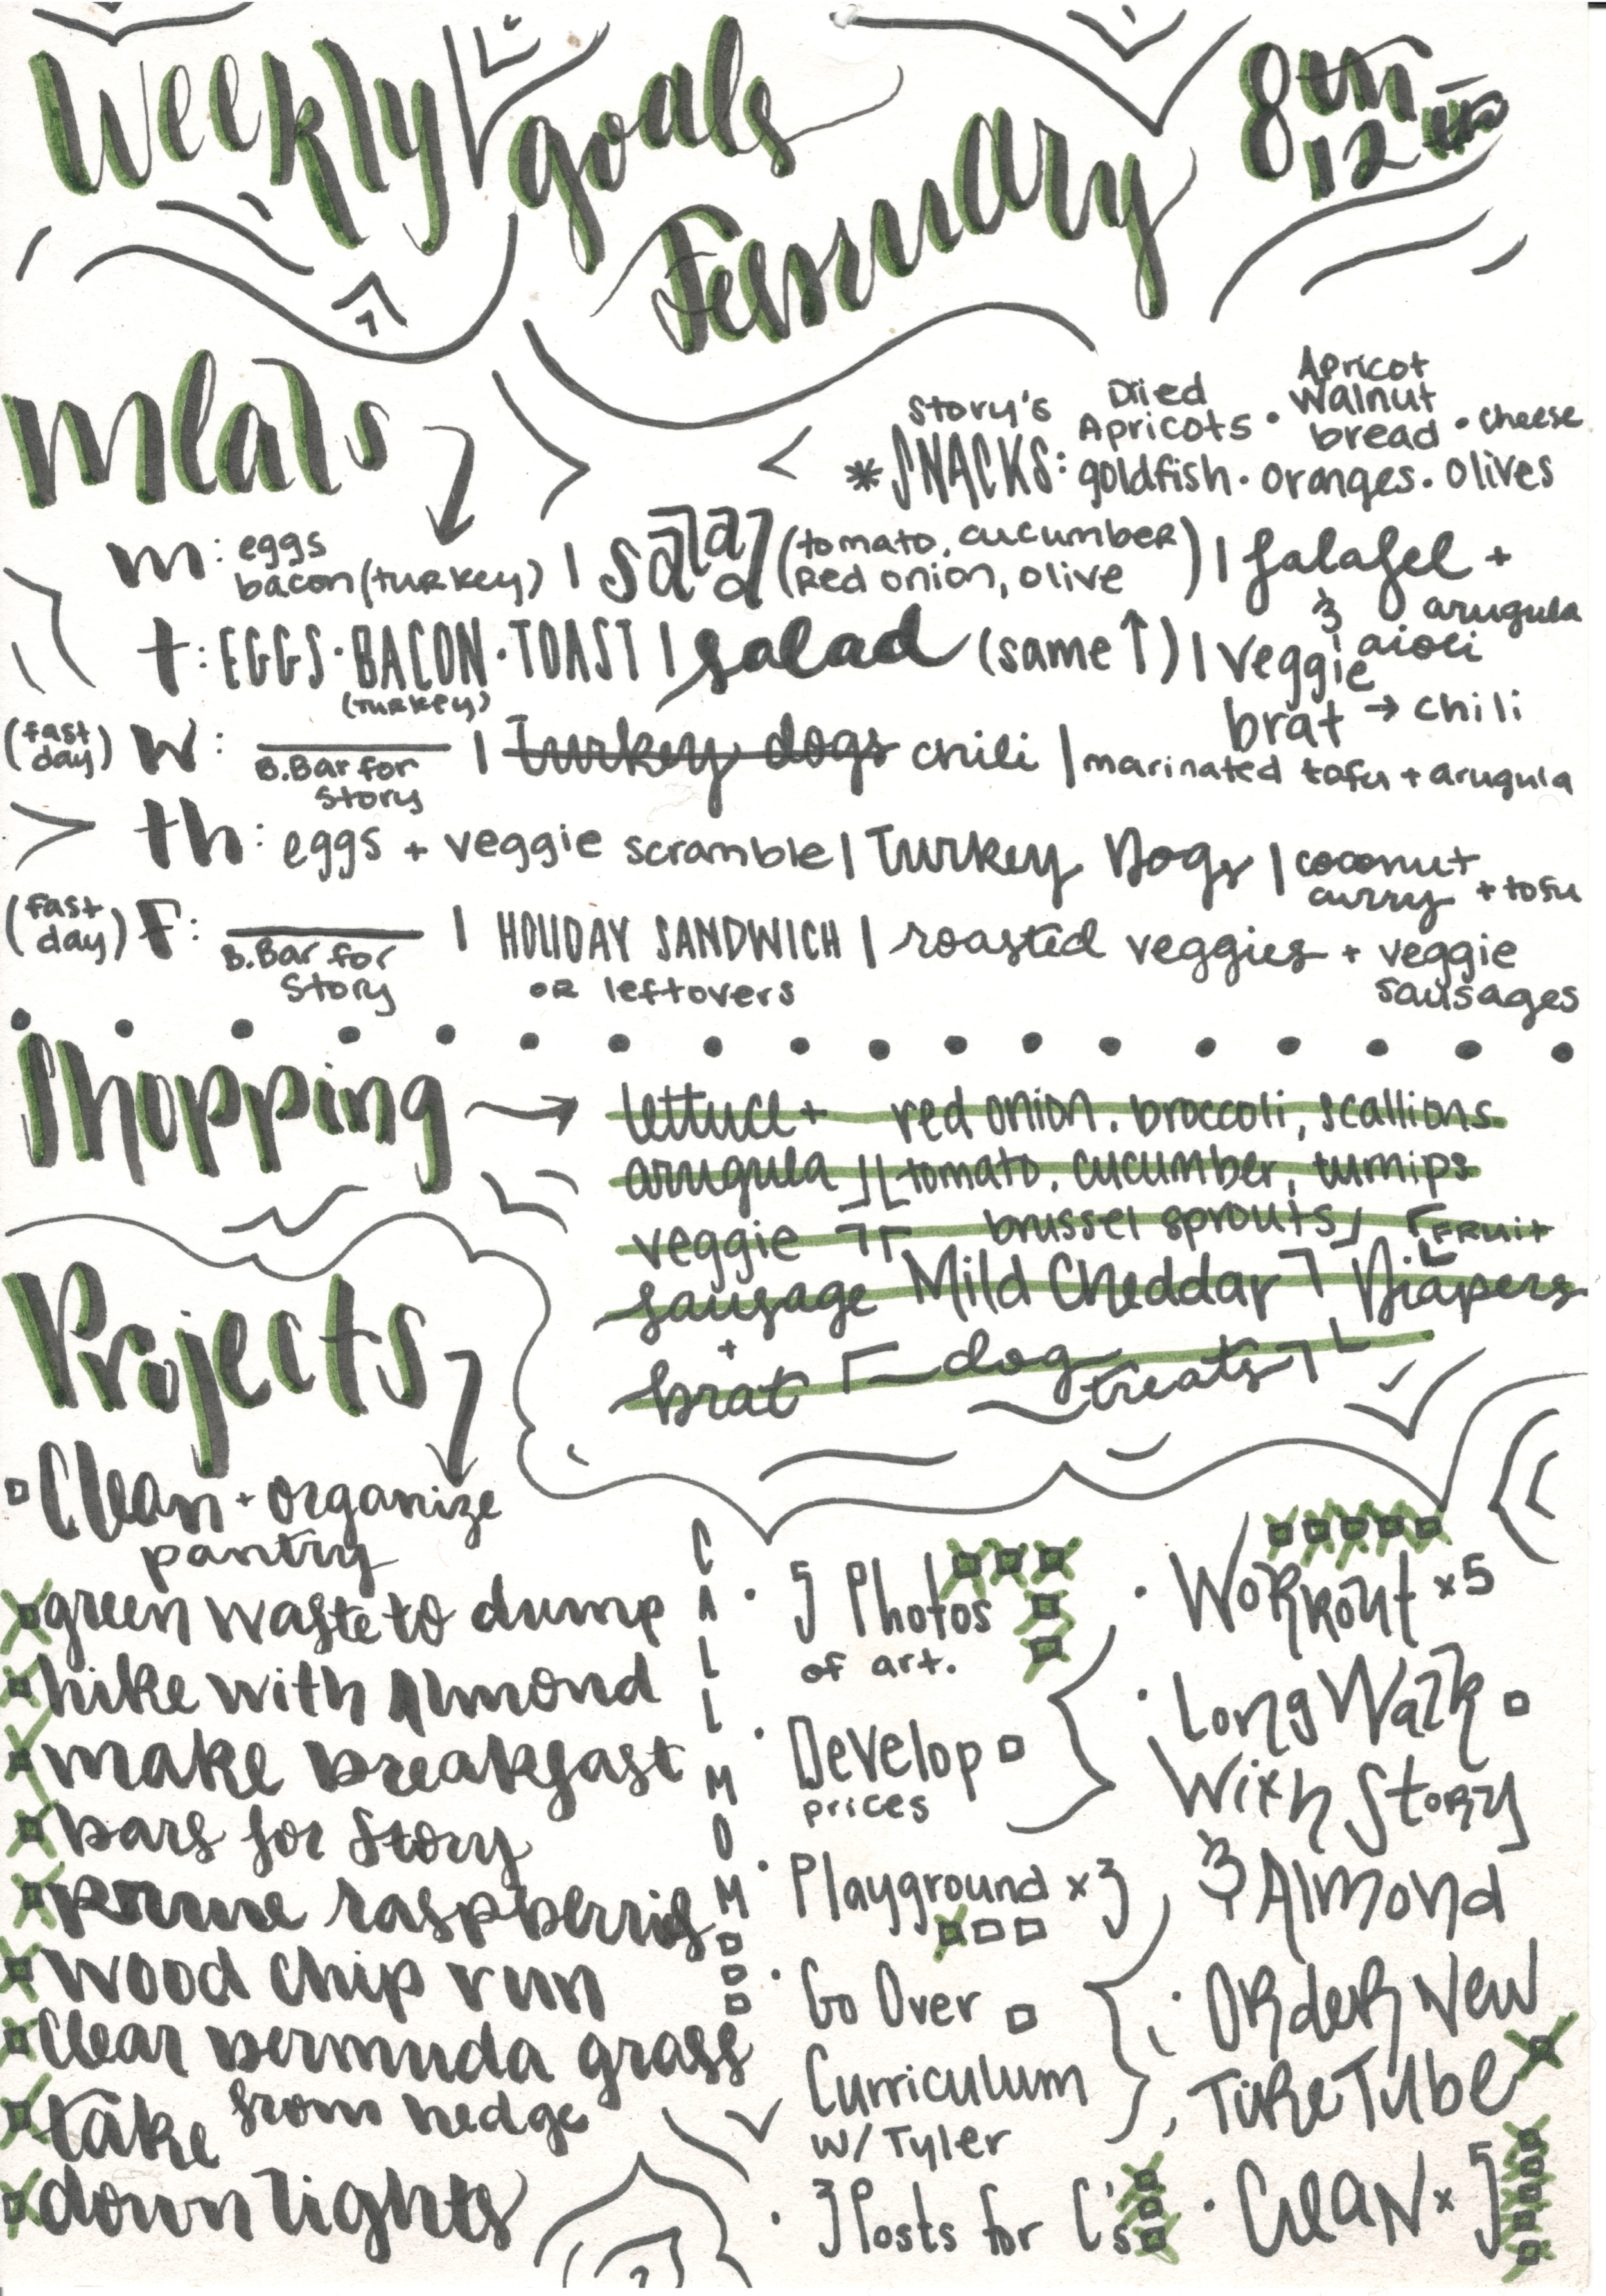 Weekly goals
February 8th
12th
Meals
Story's
*SNACKS: Dried Apricots • Apricot Walnut bread • cheese
goldfish • oranges • olives
m: eggs bacon (turkey) | salad (tomato, cucumber red onion, olive) | falafel + arugula & aioli
t: EGGS • BACON • TOAST | salad (same ↑) | veggie brat → chili
(turkey)
(fast day) W: B.Bar for Story | Turkey dogs chili | marinated tofu + arugula
th: eggs + veggie scramble | Turkey Dogs | coconut curry + tofu
(fast day) F: B.Bar for Story | HOLIDAY SANDWICH | roasted veggies + veggie sausages
OR leftovers
Shopping →
lettuce + red onion, broccoli, scallions
arugula tomato, cucumber, turnips
veggie brussel sprouts FRUIT
sausage Mild Cheddar Diapers
+
brat dog treats
Projects
Clean + organize
pantry
green waste to dump
hike with Almond
make breakfast
bars for Story
prune raspberries
wood chip run
Clear bermuda grass
from hedge
take
down lights
CALL MOM
• 5 Photos
of art.
• Develop
prices
• Playground x3
• Go Over
Curriculum
w/ Tyler
• 3 Posts for C's
• Workout x5
• Long Walk
With Story
& Almond
• Order New
Tire Tube
• Clean x 5